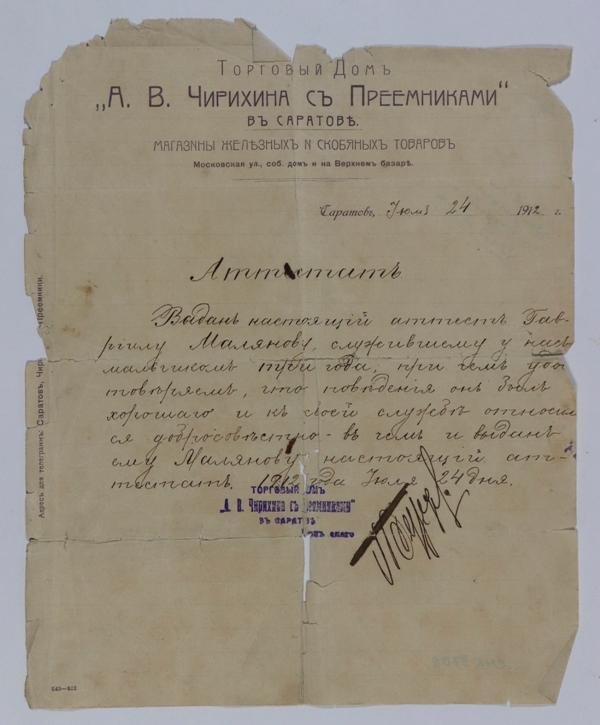 Торговый Домъ
„А. В. Чирихина съ Преемниками“
въ Саратовѣ.
Магазины желѣзныхъ и скобяныхъ товаровъ
Московская ул., соб. домъ и на Верхнемъ базарѣ.
Саратовъ, Июля 24 1912 г.
Аттестатъ
Выданъ настоящій аттестъ Гав-
рiилу Малянову, служившему у насъ
мальчикомъ три года, при чемъ удо
товѣряемъ, что поведенія онъ былъ
хорошаго и къ своей службѣ относил
ся добросовѣстно - въ чемъ и выданъ
ему Малянову настоящій ат-
тестатъ 1912 года Іюля 24 дня.
Торговый Домъ
„А. В. Чирихина съ Преемниками“
въ Саратовѣ
Адресъ для телеграммъ: Саратовъ, Чир преемники.